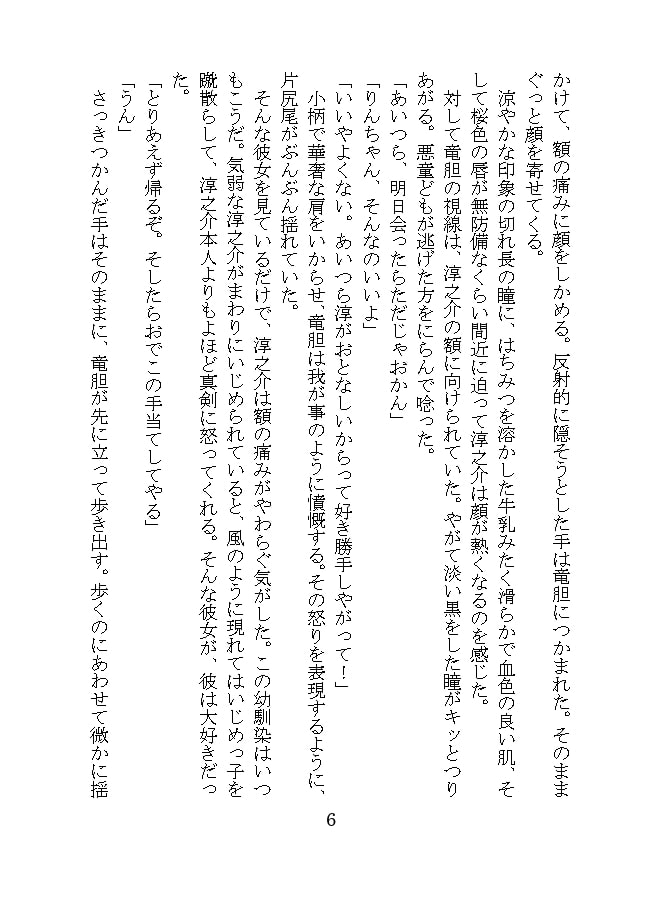 かけて、額の痛みに顔をしかめる。反射的に隠そうとした手は竜胆につかまれた。そのまま
ぐっと顔を寄せてくる。
　涼やかな印象の切れ長の瞳に、はちみつを溶かした牛乳みたく滑らかで血色の良い肌、そ
して桜色の唇が無防備なくらい間近に迫って淳之介は顔が熱くなるのを感じた。
　対して竜胆の視線は、淳之介の額に向けられていた。やがて淡い黒をした瞳がキッとつり
あがる。悪童どもが逃げた方をにらんで唸った。
「あいつら、明日会ったらただじゃおかん」
「りんちゃん、そんなのいいよ」
「いいやよくない。あいつら淳がおとなしいからって好き勝手しやがって！」
　小柄で華奢な肩をいからせ、竜胆は我が事のように憤慨する。その怒りを表現するように、
片尻尾がぶんぶん揺れていた。
　そんな彼女を見ているだけで、淳之介は額の痛みがやわらぐ気がした。この幼馴染はいつ
もこうだ。気弱な淳之介がまわりにいじめられていると、風のように現れてはいじめっ子を
蹴散らして、淳之介本人よりもよほど真剣に怒ってくれる。そんな彼女が、彼は大好きだっ
た。
「とりあえず帰るぞ。そしたらおでこの手当てしてやる」
「うん」
　さっきつかんだ手はそのままに、竜胆が先に立って歩き出す。歩くのにあわせて微かに揺
6